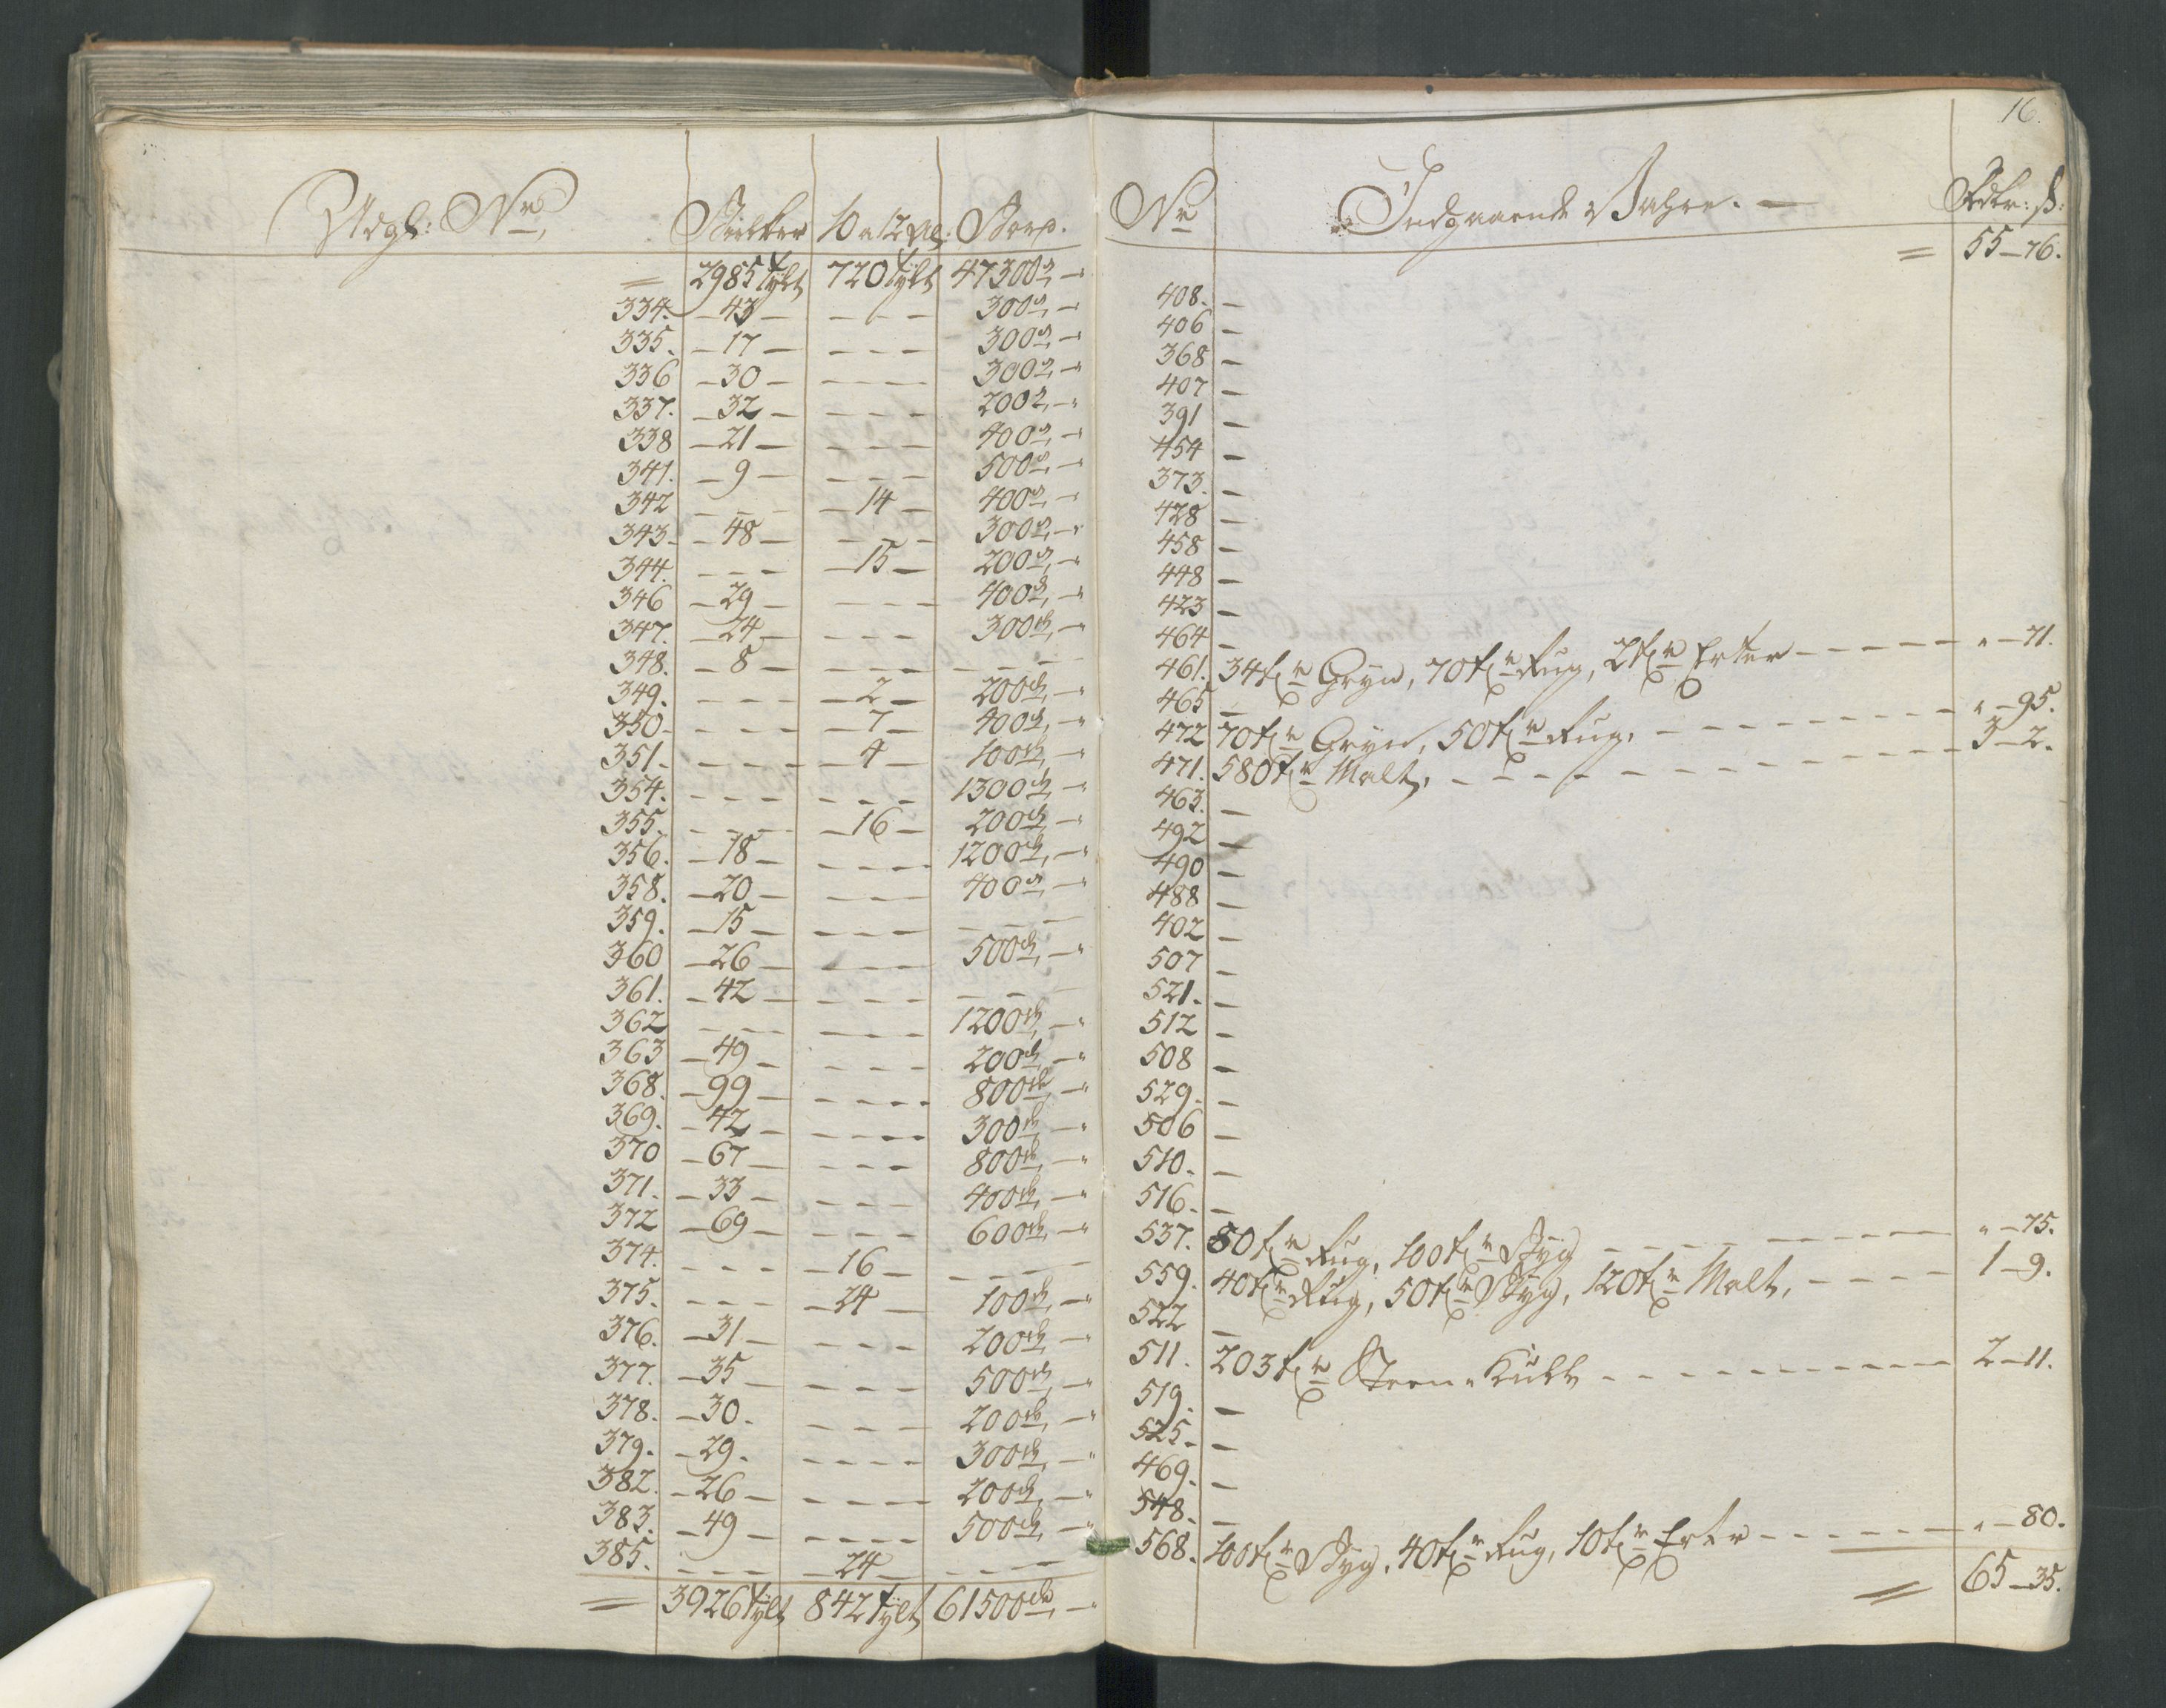 Udgl: No | Stücker | 10 a 12 Al: | Bord.
= | 2985 Tÿlt | 720 Tÿlt | 47300 —
334. — 43 — | — — — | 300 —
335. — 17 — | — — — | 300 —
336 — 30 — | — — — | 300 —
337. — 32 — | — — — | 200 —
338 — 21 — | — — — | 400 —
341. — 9 — | — — — | 500 —
342 — — — | — 14 — | 400 —
343 — 48 — | — — — | 300 —
344. — — — | — 15 — | 200 —
346 — 29 — | — — — | 400 —
347. — 24 — | — — — | 300 —
348. — 8 — | — — — | — — —
349. — — — | — 2 — | 200 —
350 — — — | — 7 — | 400 —
351. — — — | — 4 — | 100 —
354. — — — | — — — | 1300 —
355. — — — | — 16 — | 200 —
356. — 18 — | — — — | 1200 —
358. — 20 — | — — — | 400 —
359. — 15 — | — — — | — — —
360 — 26 — | — — — | 500 —
361. — 42 — | — — — | — — —
362 — — — | — — — | 1200 —
363 — 49 — | — — — | 200 —
368. — 99 — | — — — | 800 —
369. — 42 — | — — — | 300 —
370 — 67 — | — — — | 800 —
371. — 33 — | — — — | 400 —
372 — 69 — | — — — | 600 —
374. — — — | — 16 — | — — —
375. — — — | — 24 — | 100 —
376. — 31 — | — — — | 200 —
377. — 35 — | — — — | 500 —
378. — 30. | — — — | 200 —
379. — 29. | — — — | 300 —
382. — 26 — | — — — | 200 —
383. — 49 — | — — — | 500 —
385. — — — | — 24 — | — — —
= | 3926 Tÿlt | 842 Tÿlt | 61500 —
16.
No | Indgaaende Vahre. — | Rdlr: ß:
= 55 — 76.
408. —
406 —
368 —
407 —
391 —
454 —
373. —
428 —
458 —
448 —
423 —
464 —
461. 34 tr Gryn, 70 tr Rug, 2 tr Erter — — — " — 71.
465 —
472 70 tr Gryn, 50 tr Rug. — — — " — 95.
471. 580 tr Malt, — — — 3 — 2.
463. —
492 —
490 —
488 —
402 —
507 —
521. —
512 —
508 —
529. —
506 —
510. —
516. —
537. 80 tr Rug, 100 tr Byg — — — " — 75.
559. 40 tr Rug, 50 tr Byg, 120 tr Malt, — — — 1 — 9.
522 —
511. 203 tr Steen-Kull — — — 2 — 11.
519. —
525 —
469. —
548. —
568. 100 tr Byg, 40 tr Rug, 10 tr Erter — — — " — 80.
= 65 — 35.